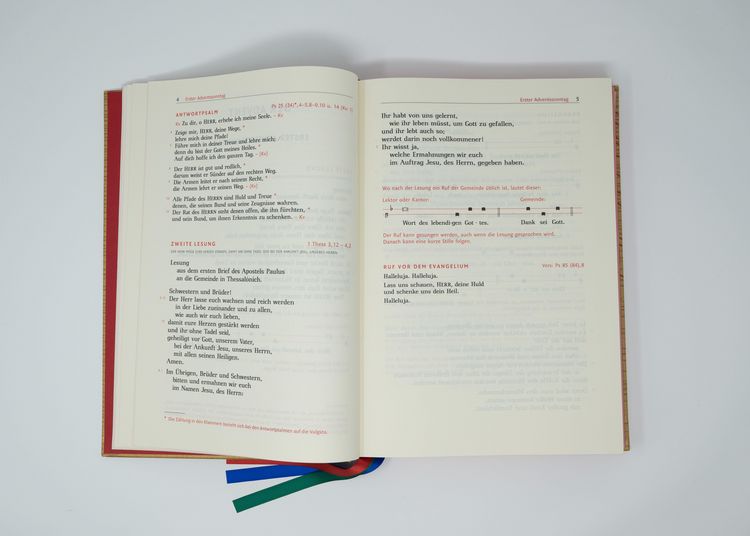 4 Erster Adventssonntag
Ps 25 (24)*,4–5.8–9.10 u. 14 (Kv: 1)
ANTWORTPSALM
Kv Zu dir, o HERR, erhebe ich meine Seele. – Kv
4 Zeige mir, HERR, deine Wege, *
lehre mich deine Pfade!
5 Führe mich in deiner Treue und lehre mich; *
denn du bist der Gott meines Heiles. *
Auf dich hoffe ich den ganzen Tag. – (Kv)
8 Der HERR ist gut und redlich, *
darum weist er Sünder auf den rechten Weg.
9 Die Armen leitet er nach seinem Recht, *
die Armen lehrt er seinen Weg. – (Kv)
10 Alle Pfade des HERRN sind Huld und Treue *
denen, die seinen Bund und seine Zeugnisse wahren.
14 Der Rat des HERRN steht denen offen, die ihn fürchten, *
und sein Bund, um ihnen Erkenntnis zu schenken. – Kv
ZWEITE LESUNG 1 Thess 3, 12 – 4, 2
Lesung
aus dem ersten Brief des Apostels Paulus
an die Gemeinde in Thessalónich.
Schwestern und Brüder!
Der Herr lasse euch wachsen und reich werden
in der Liebe zueinander und zu allen,
wie auch wir euch lieben,
damit eure Herzen gestärkt werden
und ihr ohne Tadel seid,
geheiligt vor Gott, unserem Vater,
bei der Ankunft Jesu, unseres Herrn,
mit allen seinen Heiligen.
Amen.
Im Übrigen, Brüder und Schwestern,
bitten und ermahnen wir euch
im Namen Jesu, des Herrn:
* Die Zählung in den Klammern bezieht sich bei den Antwortpsalmen auf die Vulgata.
Erster Adventssonntag 5
Ihr habt von uns gelernt,
wie ihr leben müsst, um Gott zu gefallen,
und ihr lebt auch so;
werdet darin noch vollkommener!
Ihr wisst ja,
welche Ermahnungen wir euch
im Auftrag Jesu, des Herrn, gegeben haben.
Wo nach der Lesung ein Ruf der Gemeinde üblich ist, lautet dieser:
Lektor oder Kantor: Gemeinde:
Wort des lebendi-gen Got - tes. Dank sei Gott.
Der Ruf kann gesungen werden, auch wenn die Lesung gesprochen wird.
Danach kann eine kurze Stille folgen.
RUF VOR DEM EVANGELIUM Vers: Ps 85 (84),8
Halleluja. Halleluja.
Lass uns schauen, HERR, deine Huld
und schenke uns dein Heil.
Halleluja.